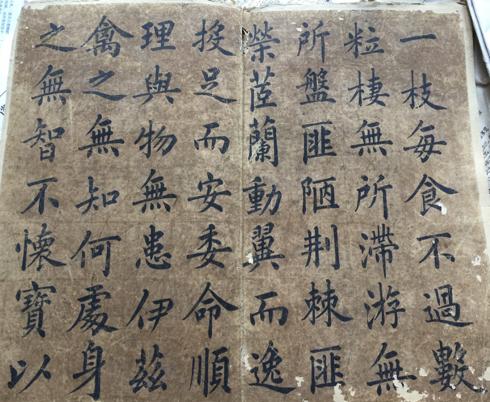 一枝每食不過數
粒棲無所滯游無
所盤匪陋荆棘匪
榮茝蘭動翼而逸
投足而安委命順
理與物無患伊茲
禽之無知何處身
之無智不懷寶以